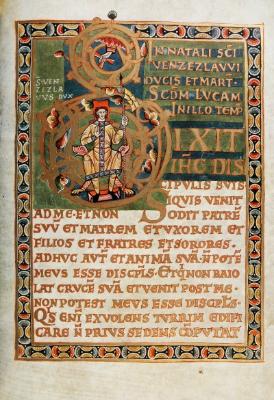 IN NATALI SCI
VENZEZLAVVI
DVCIS ET MART
SCDM LVCAM
IN ILLO TEMP
S VENZ
EZLA
VVS DVX
DIXIT
IHC DIS
CIPVLIS SVIS
SIQVIS VENIT
AD ME ET NON ODIT PATRE
SVV ET MATREM ET VXOREM ET
FILIOS ET FRATRES ET SORORES
ADHVC AVT ET ANIMA SVA NPOTE
MEVS ESSE DISCPLS ET Q NON BAIO
LAT CRVCE SVA ET VENIT POST ME
NON POTEST MEVS ESSE DISCPLS
QS ENI EX VOLENS TVRRIM EDIFI
CARE N PRIVS SEDENS COPVTAT